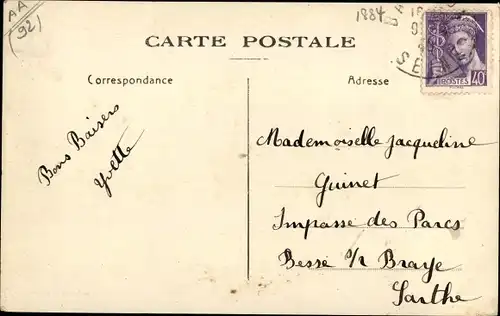 AA
(92)
1884
CARTE POSTALE
Correspondance
Adresse
POSTES
40
Bons Baisers
Yvette
Mademoiselle Jacqueline
Guinet
Impasse des Parcs
Bessé s/r Braye
Sarthe